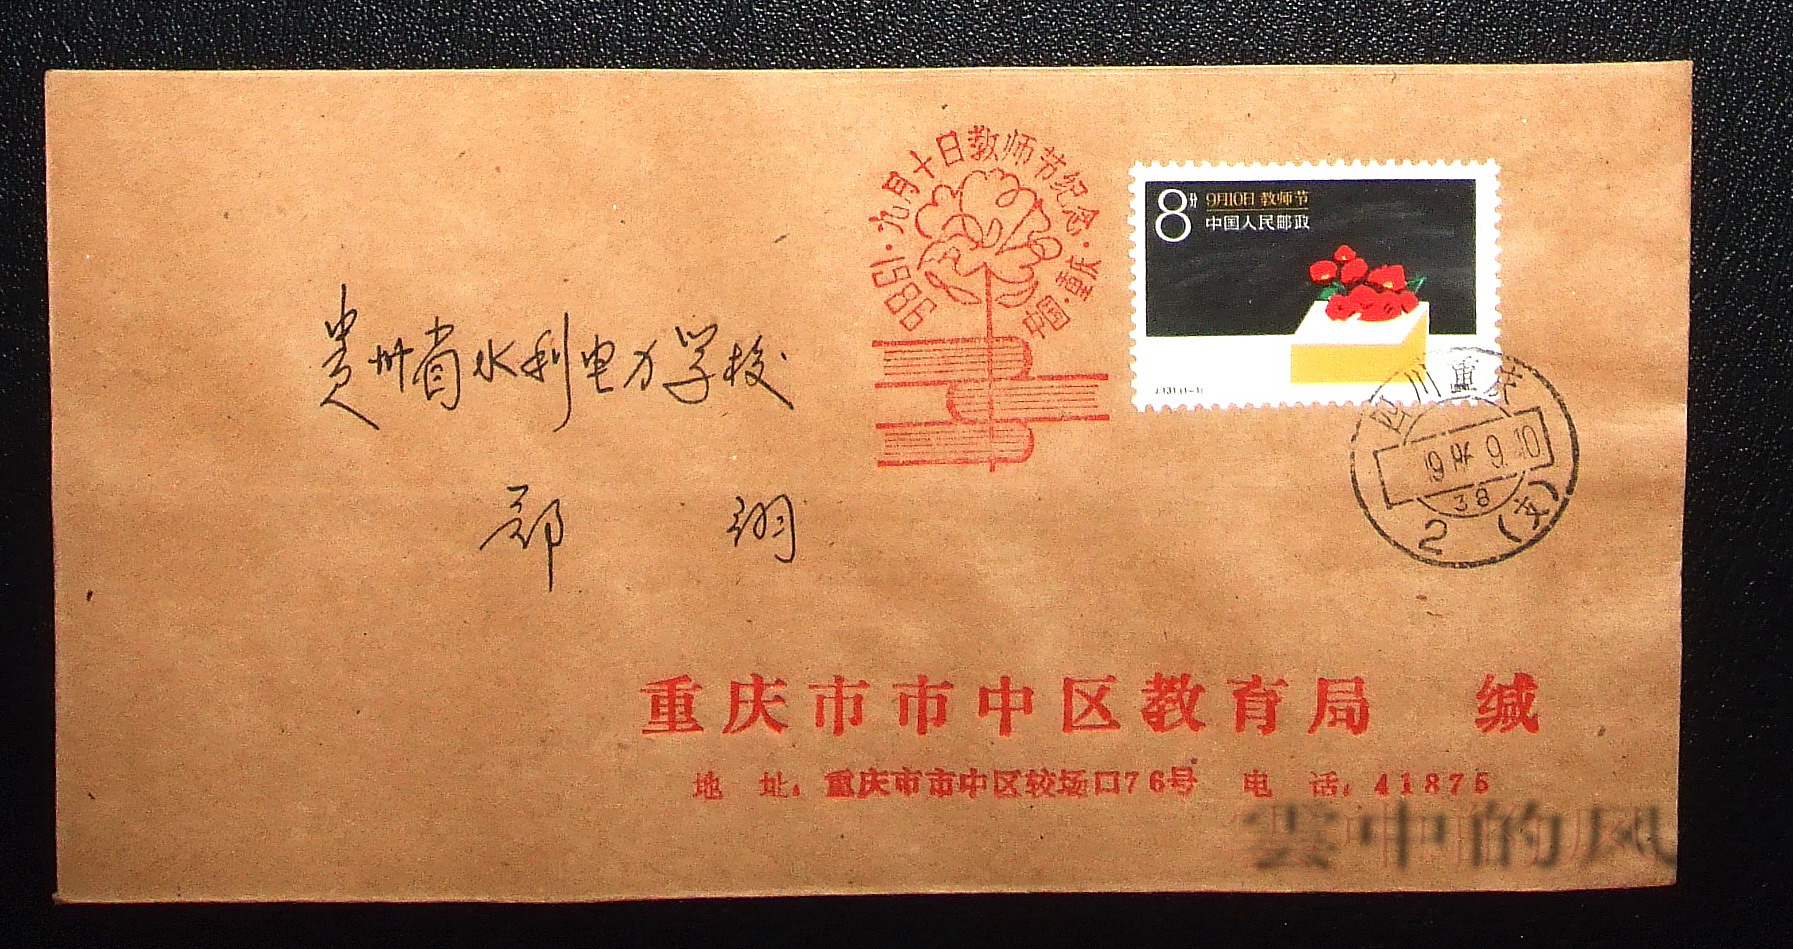 ·九月十日教师节纪念·
1986
中国·重庆
8分
9月10日 教师节
中国人民邮政
J.131.(1-1)
四川重庆
1986.9.10
38
2(支)
贵州省水利电力学校
郑 翊
重庆市市中区教育局 缄
地 址:重庆市市中区较场口76号 电 话:41875
雲中的风